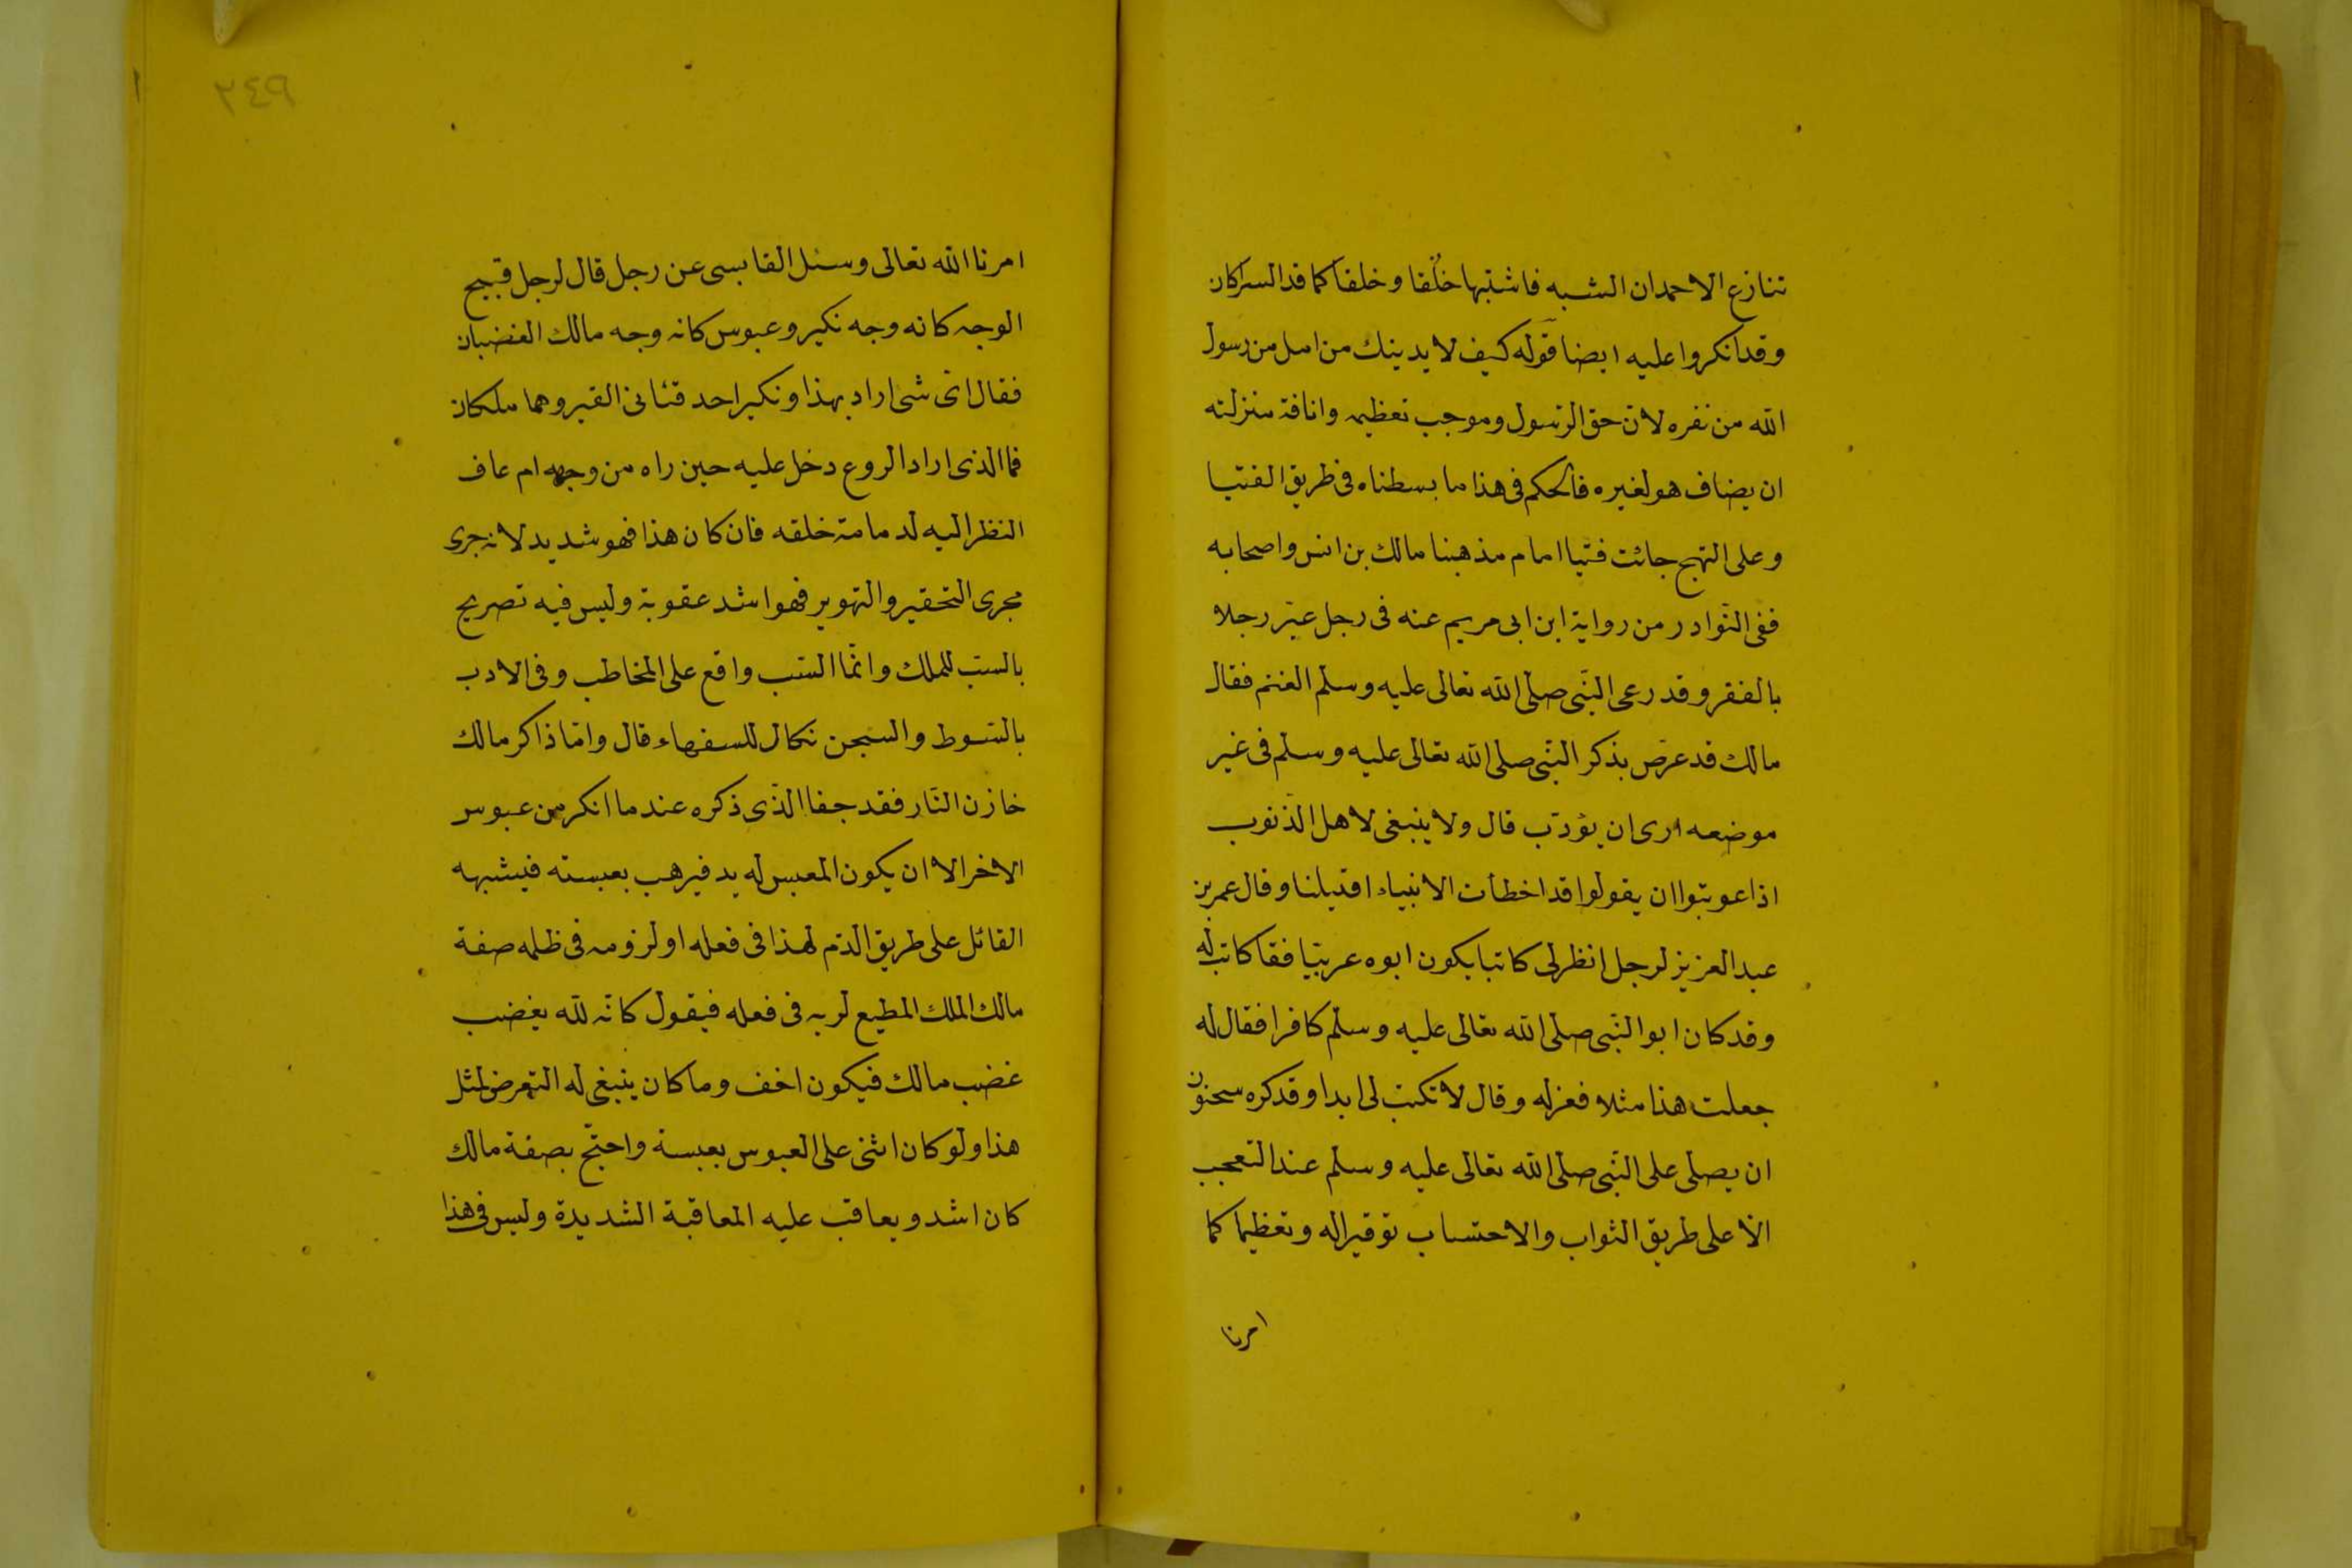 تنازع الاحمدان الشبه فاشتبها خلقا وخلقا كما قد الشراكان
وقد انكروا عليه ايضا قوله كيف لا يدينك من امل من رسول
الله من نفره لان حق الرسول وموجب تعظيمه وانافة منزلته
ان يضاف هو لغيره فالحكم فى هذا ما بسطناه فى طريق الفتيا
وعلى النهج جائت فتيا امام مذهبنا مالك بن انس واصحابه
ففى النوادر من رواية ابن ابى مريم عنه فى رجل عير رجلا
بالفقر وقد رعى النبى صلى الله تعالى عليه وسلم الغنم فقال
مالك قد عرض بذكر النبى صلى الله تعالى عليه وسلم فى غير
موضعه ارى ان يؤدب قال ولا ينبغى لاهل الذنوب
اذا عوتبوا ان يقولوا قد اخطأت الانبياء اقتيلنا وقال عمر بن
عبد العزيز لرجل انظر لى كاتبا يكون ابوه عربيا فقا كاتب له
وقد كان ابو النبى صلى الله تعالى عليه وسلم كافرا فقال له
جعلت هذا مثلا فعزله وقال لا تكتب لى ابدا وقد كره سحنون
ان يصلى على النبى صلى الله تعالى عليه وسلم عند التعجب
الا على طريق الثواب والاحتساب توقيرا له وتعظيما كما
امرنا
٢٤٩
امرنا الله تعالى وسئل القابسى عن رجل قال لرجل قبيح
الوجه كانه وجه نكير وعبوس كانه وجه مالك الغضبان
فقال اى شى اراد بهذا ونكير احد فتانى القبر وهما ملكان
فما الذى اراد الروع دخل عليه حين راه من وجهه ام عاف
النظر اليه لدمامة خلقه فان كان هذا فهو شديد لانه جرى
مجرى التحقير والتهوير فهو اشد عقوبة وليس فيه تصريح
بالسب للملك وانما السب واقع على المخاطب وفى الادب
بالسوط والسجن نكال للسفهاء قال واما ذاكر مالك
خازن النار فقد جفا الذى ذكره عند ما انكر من عبوس
الاخر الا ان يكون المعبس له يد فيرهب بعبسته فيشبهه
القائل على طريق الذم لهذا فى فعله او لزومه فى ظلمه صفة
مالك الملك المطيع لربه فى فعله فيقول كانه لله يغضب
غضب مالك فيكون اخف وما كان ينبغى له التعرض لمثل
هذا ولو كان اثنى على العبوس بعبسة واحتج بصفة مالك
كان اشد ويعاقب عليه المعاقبة الشديدة وليس فى هذا